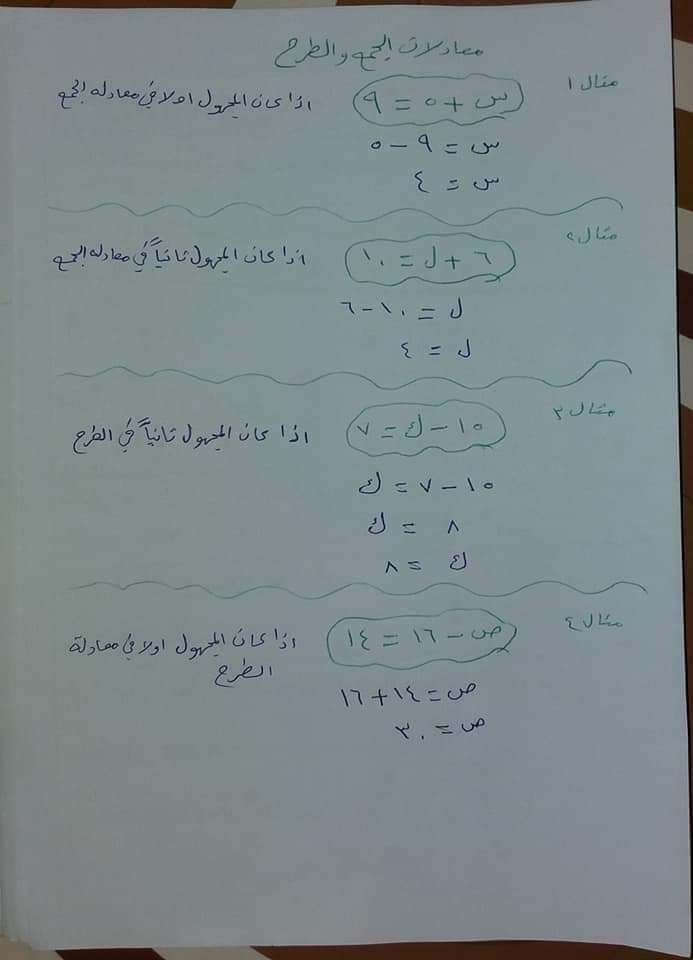 معادلات الجمع والطرح
مثال ١ س + ٥ = ٩ اذا كان المجهول اولا في معادله الجمع
س = ٩ − ٥
س = ٤
مثال ٢ ٦ + ل = ١٠ اذا كان المجهول ثانياً في معادله الجمع
ل = ١٠ − ٦
ل = ٤
مثال ٣ ١٥ − ك = ٧ اذا كان المجهول ثانياً في الطرح
١٥ − ٧ = ك
٨ = ك
ك = ٨
مثال ٤ ص − ١٦ = ١٤ اذا كان المجهول اولا في معادلة
الطرح
ص = ١٤ + ١٦
ص = ٣٠